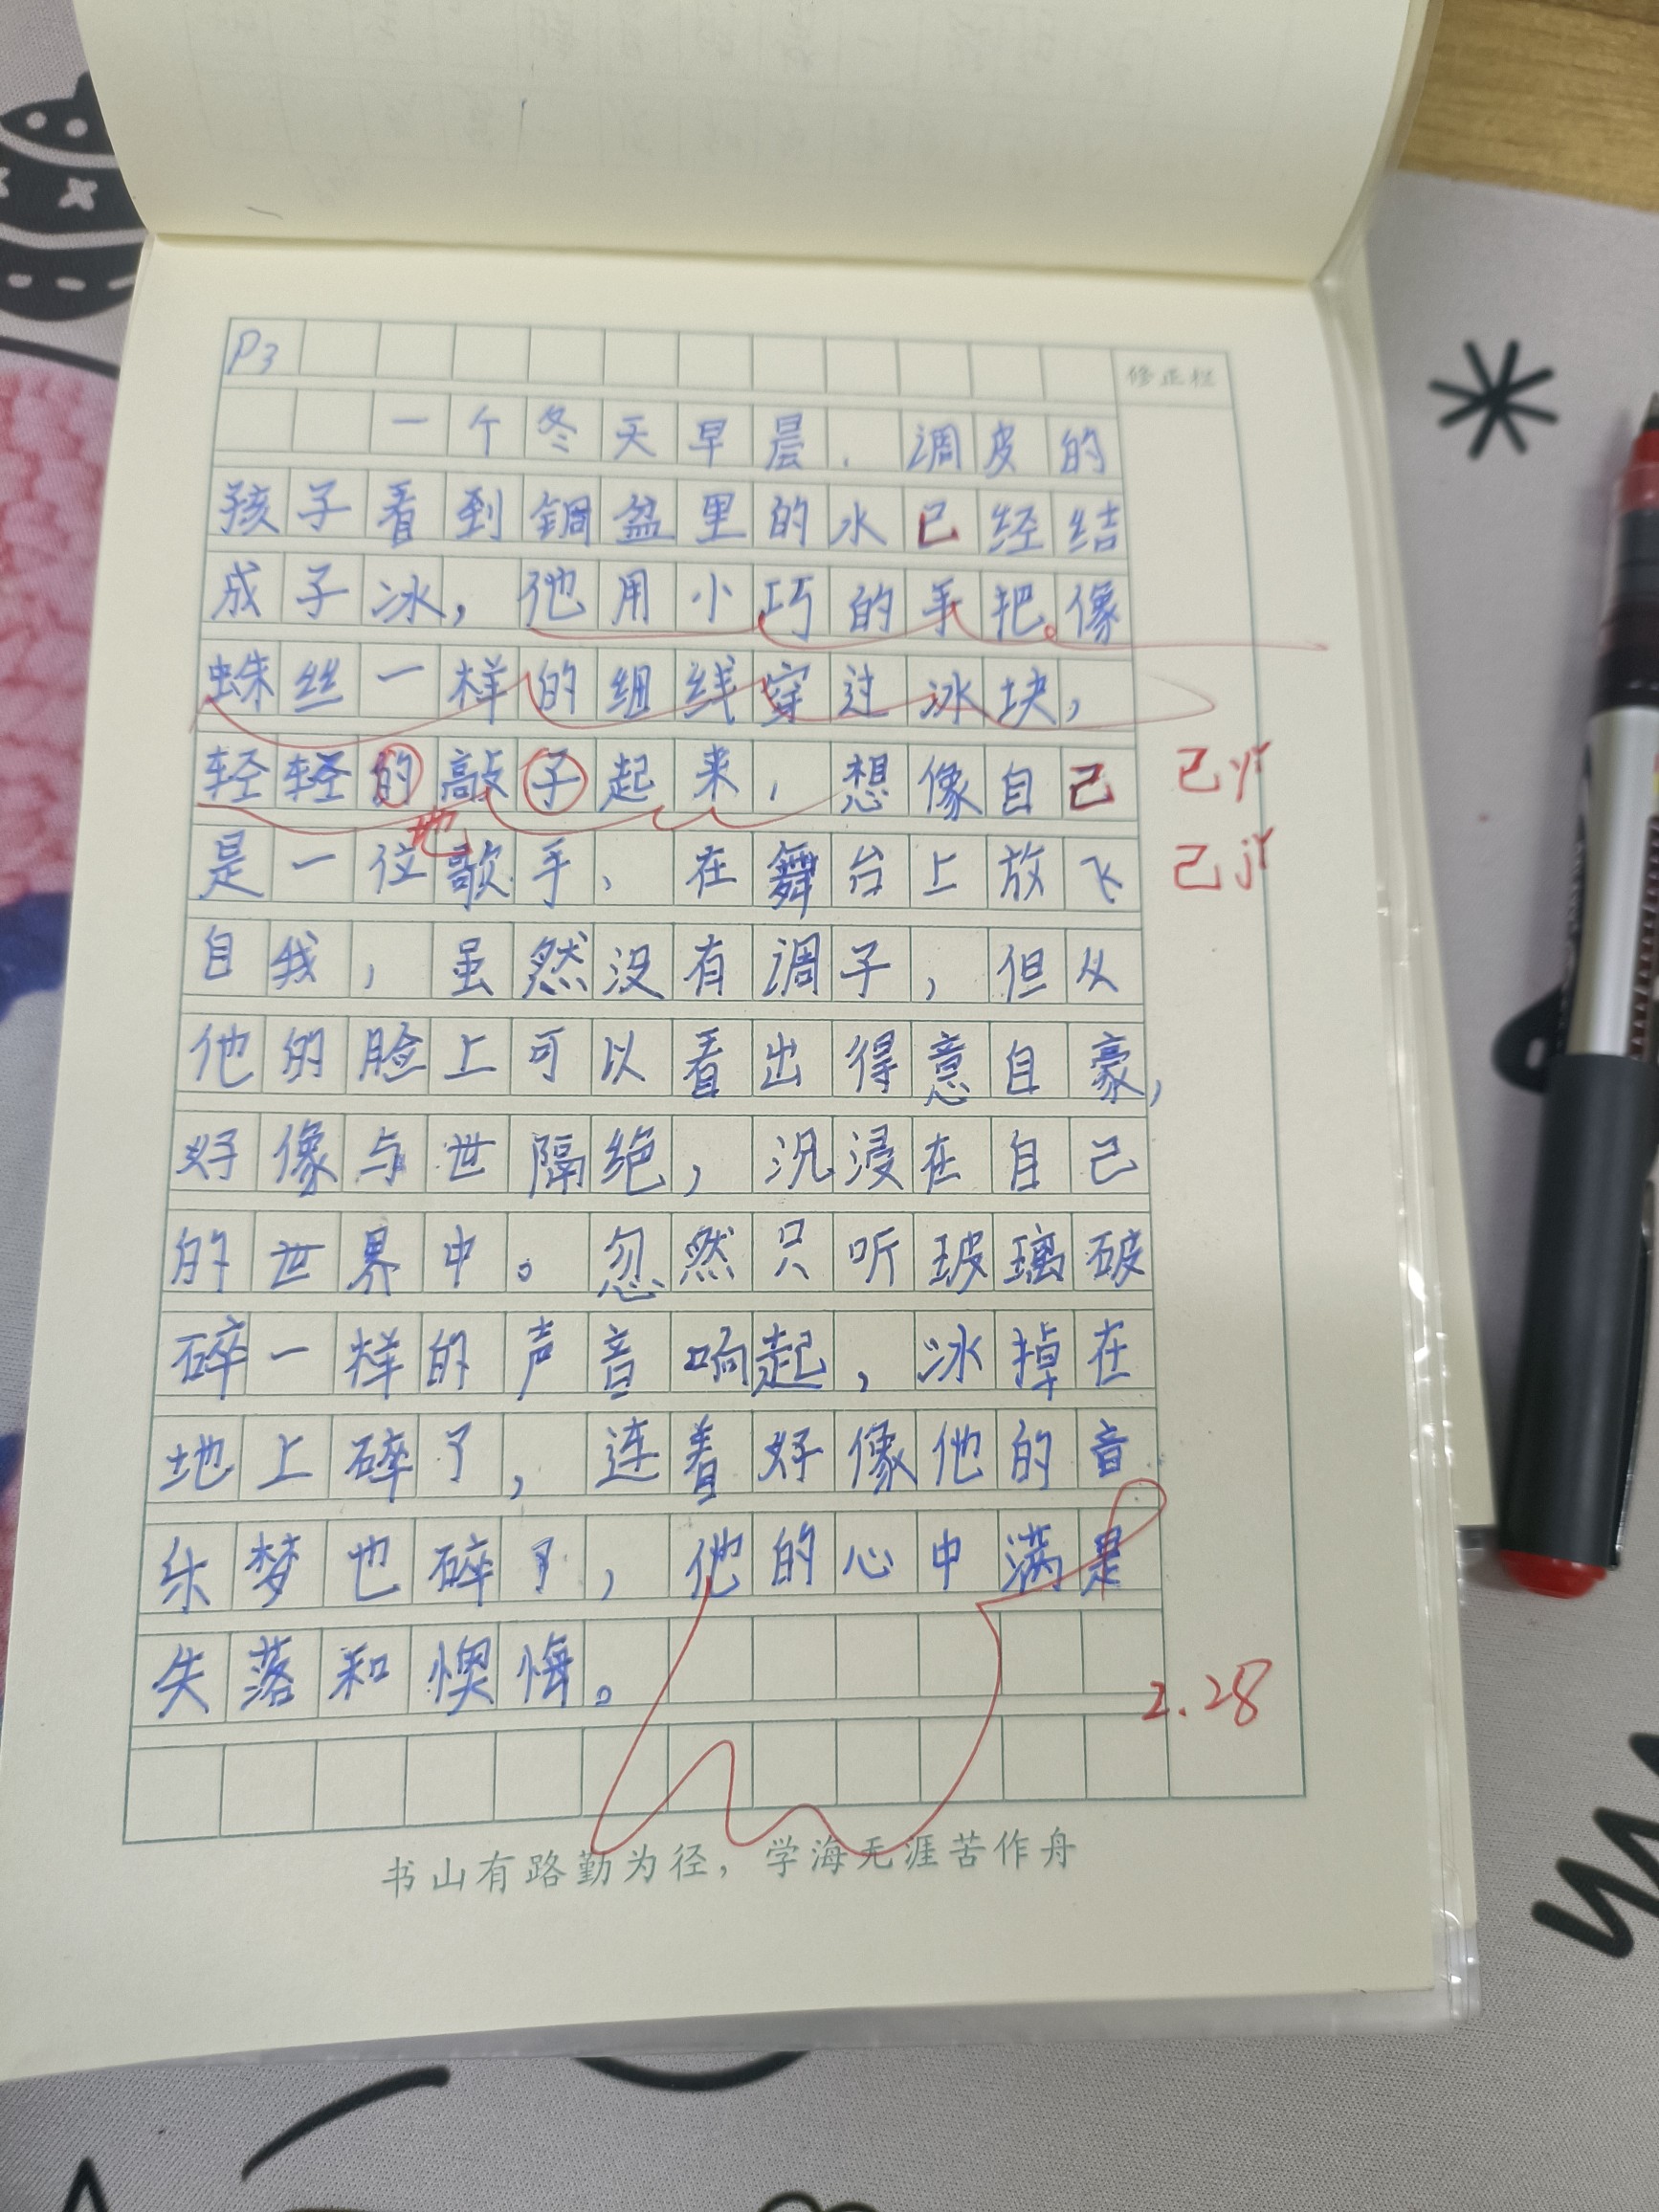 P3
修正栏
一个冬天早晨，调皮的
孩子看到铜盆里的水已经结
成子冰，他用小巧的手把。像
蛛丝一样的细线穿过冰块，
轻轻的敲子起来，想像自己
已yǐ
地
是一位歌手、在舞台上放飞
己jǐ
自我，虽然没有调子，但从
他的脸上可以看出得意自豪，
好像与世隔绝，沉浸在自己
的世界中。忽然只听玻璃破
碎一样的声音响起，冰掉在
地上碎了，连着好像他的音
乐梦也碎了，他的心中满是
失落和懊悔。
2.28
书山有路勤为径，学海无涯苦作舟